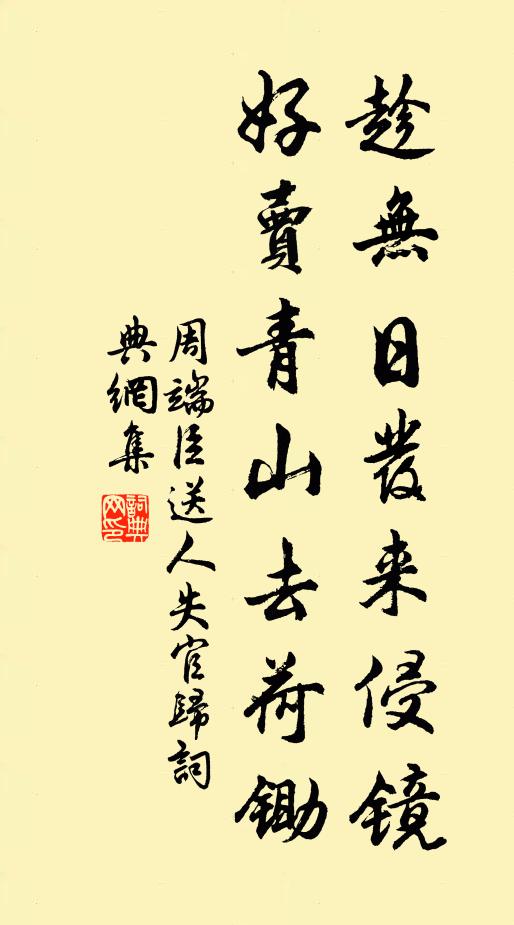 趁無日發来侵镜
好賣青山去荷锄
周端臣送人失官歸詞
典網集
詞典
网印